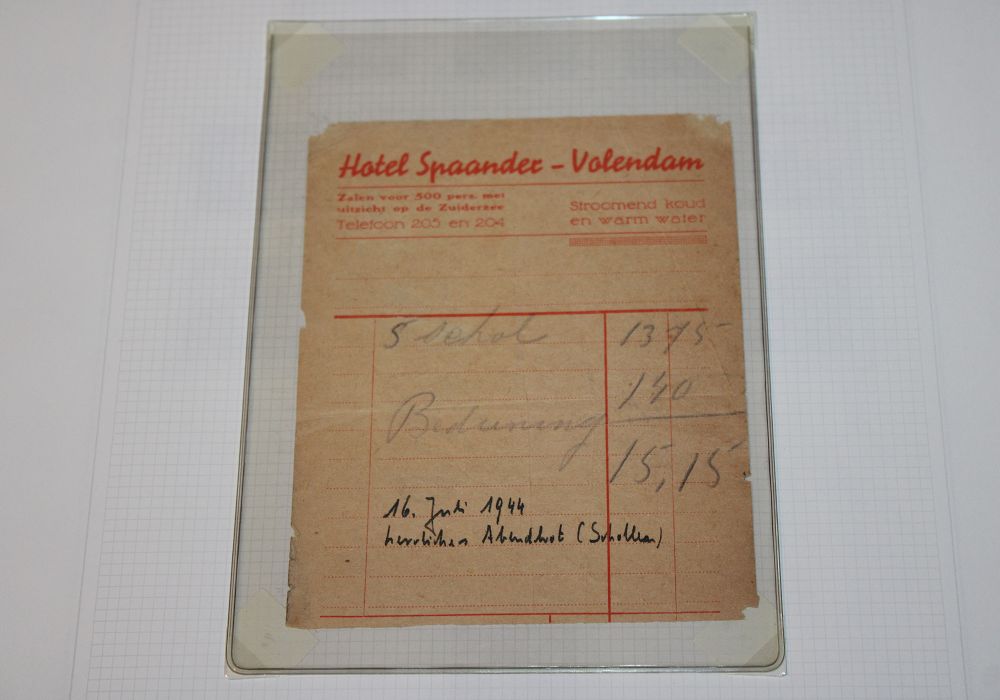 Hotel Spaander – Volendam
Zalen voor 500 pers. met
uitzicht op de Zuiderzee
Telefoon 205 en 204
Stroomend koud
en warm water
5 schol 13 75
Bediening 1 40
15,15
16. Juli 1944
herrliches Abendbrot (Schollen)